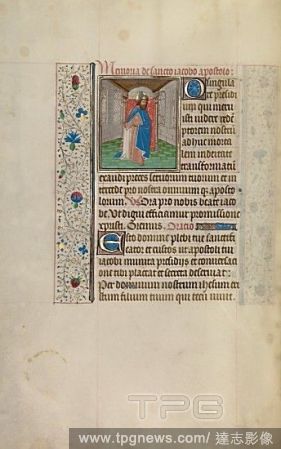 Memoria de sancto iacobo apostolo:
O singula
re presidi
um qui meru
isti videre redē
ptorem nostrū
ad huc morta
lem in deitate
transformatū
exaudi preces servorum tuorum et in
tercede pro nostra omnium q; aposto
lorum Vs Ora pro nobis beate iaco
be Ut digni efficiamur promissione
xpristi. Oremus. Oracio
Esto domine plebi tue sanctifi
cator et custos ut apostoli tui
iacobi munita presidijs et conversaci
one tibi placeat et secura deserviat:
Per dominum nostrum ihesum cri
stum filium tuum qui tecū vivit.
TPG
www.tpgnews.com/ 達志影像